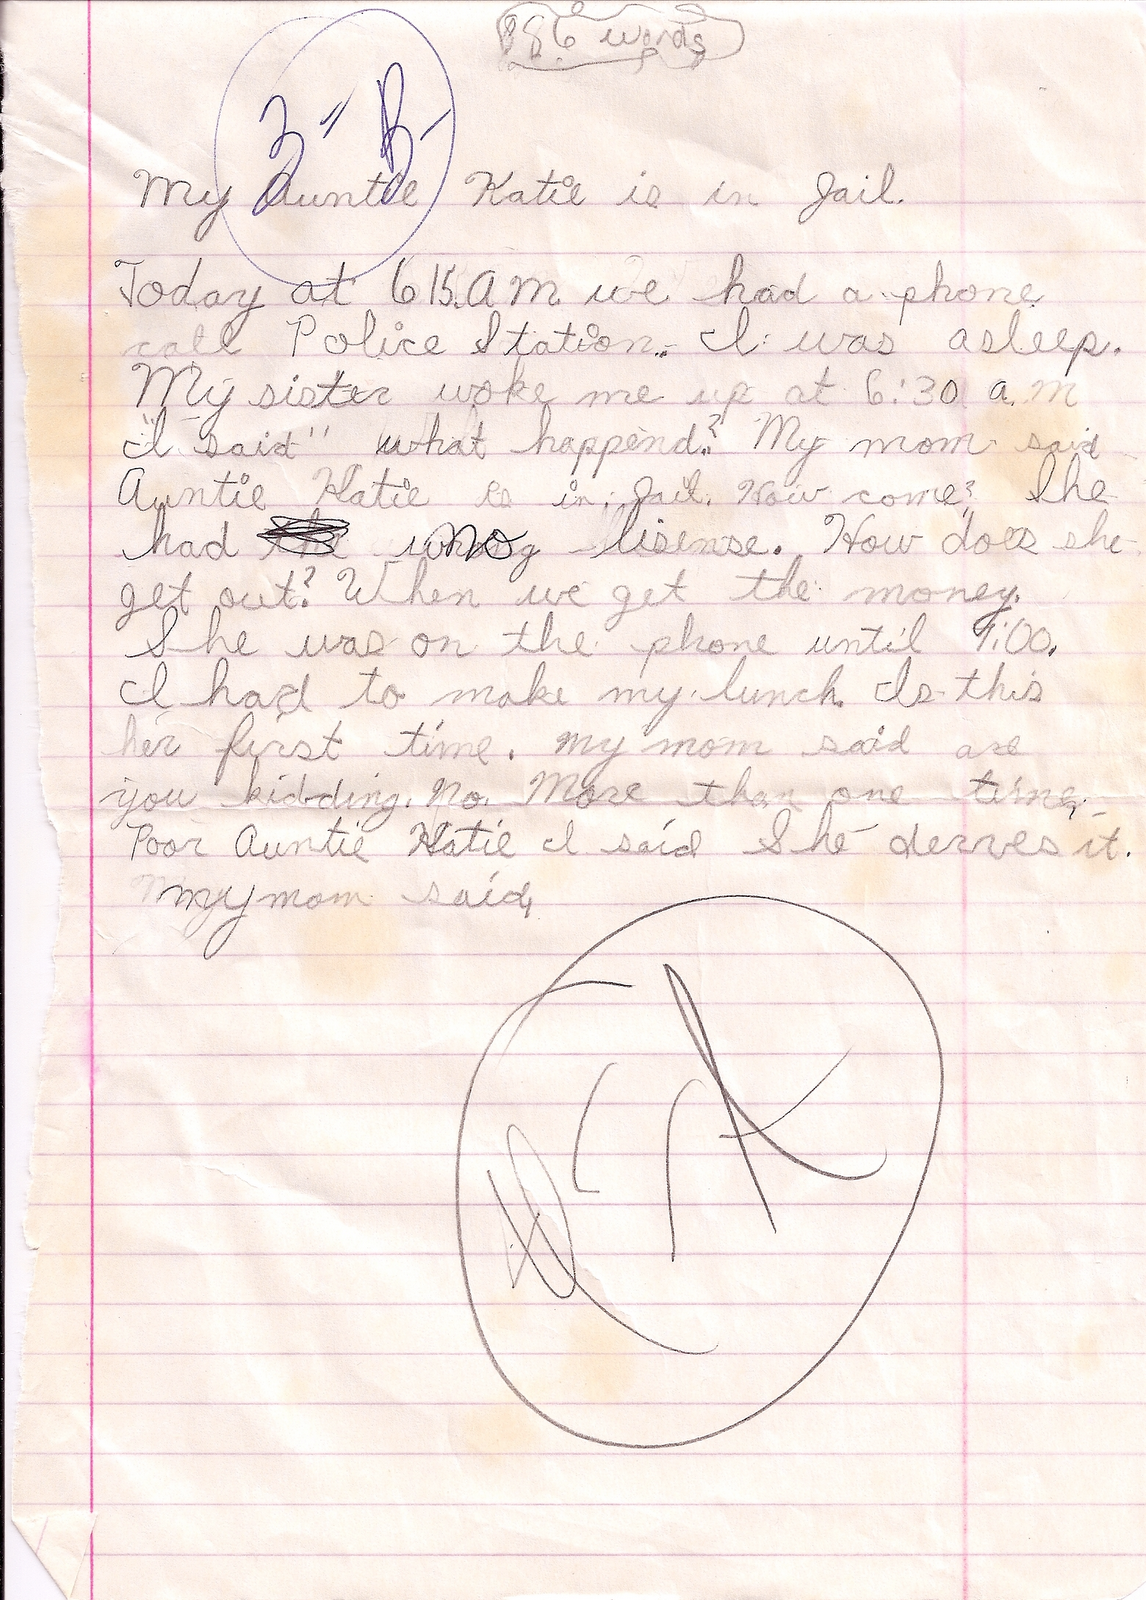 86 words
3" B-
My Auntie Katie is in Jail.
Today at 6 15. A M we had a phone
call Police Station. I was asleep.
My sister woke me up at 6:30 a.m
"I said" what happend? My mom said
Auntie Katie is in Jail. How come? She
had no lisense. How does she
get out? When we get the money.
She was on the phone until 9:00.
I had to make my lunch. Is this
her first time. My mom said are
you kidding. No. More than one time,
Poor Auntie Katie I said She derves it.
my mom said,